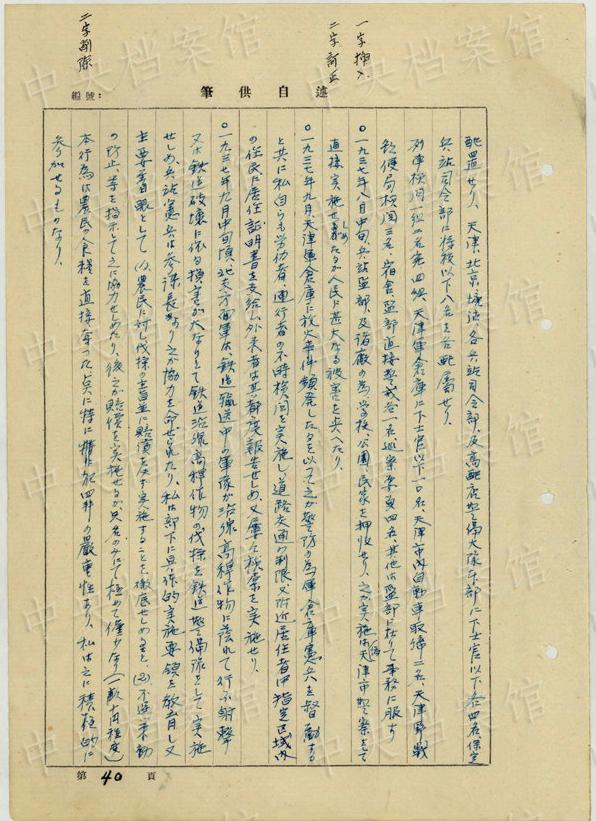 述自供筆
編號：
一字挿入
二字訂正
二字削除
配置せり、天津、北京、塘沽、各兵站司令部、及高配店警備大隊本部に下士官以下各四名、保定
兵站司令部に将校以下八名を各配属せり。
列車検閲一組二名第四組、天津軍倉庫に下士官以下一〇名、天津市内自動車取締二名、天津野戦
郵便局検閲三名、宿舎監部直接警戒各一名、巡察要員四名、其他は監部に於りて事務に服す
〇一九三七年八月中旬、兵站監部、及諸廠の為学校、公園、民家を押収せり、之が実施は天津市警察をして
直接実施せしめたるが人民に甚大なる被害を与へたり。
〇一九三七年九月、天津軍倉庫に放火事件頻発したるを以って之が警防の為軍倉庫憲兵を督励する
と共に私自らも労働者、通行者の不時検問を実施し道路交通の制限又附近居住者中指定区域内
の住民に居住証明書を支給し外来者は其都度報告せしめ、又屡々検索を実施せり。
〇一九三七年九月中旬頃、北支方面軍は、鉄道輸送中の軍隊が沿線高稈作物に蔭れて行ふ射撃
又は鉄道破壊に依る損害が大なりとて鉄道沿線高稈作物の伐採を鉄道警備隊をして実施
せしめ、兵站憲兵は参謀長より之が協力を命ぜられたり、私は部下に具体的実施要領を教育し又
主要着眼として(1)、農民に対し伐採の主旨並に賠償を必ず実施することを徹底せしめること、(2)、不逞策動
の防止、等を指示して之に協力せしめたり、後之が賠償を実施せるが其名のみにて極めて僅少分(一畝十円程度)
本行為は農民の食糧を直接奪った点に特に犯罪の厳重性あり、私は之に積極的に
参加せるものなり。
第 40 頁
中央档案馆